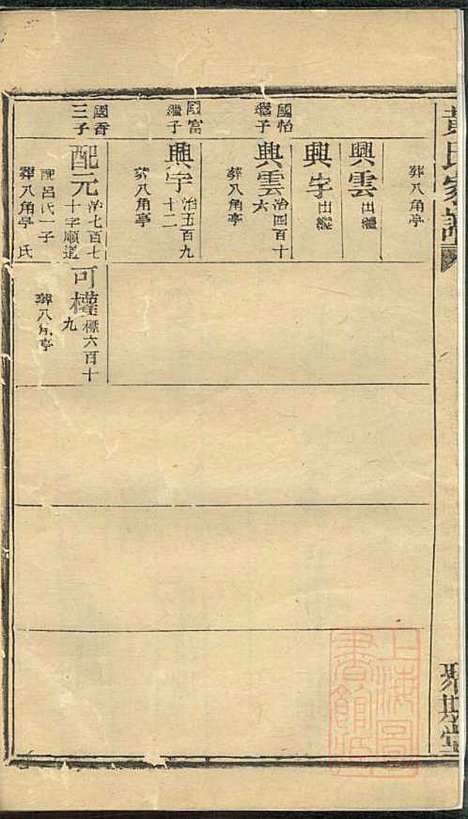 葬八角亭
興雲出繼
興字出繼
國怡
繼子
興雲治四百十
六
葬八角亭
國富
繼子
興字治五百九
十二
葬八角亭
國香
三子
配元治七百七
十字順道
配呂氏一子
葬八角亭 氏
可權標六百十
九
葬八角亭
黃氏家譜
上海圖
書館藏